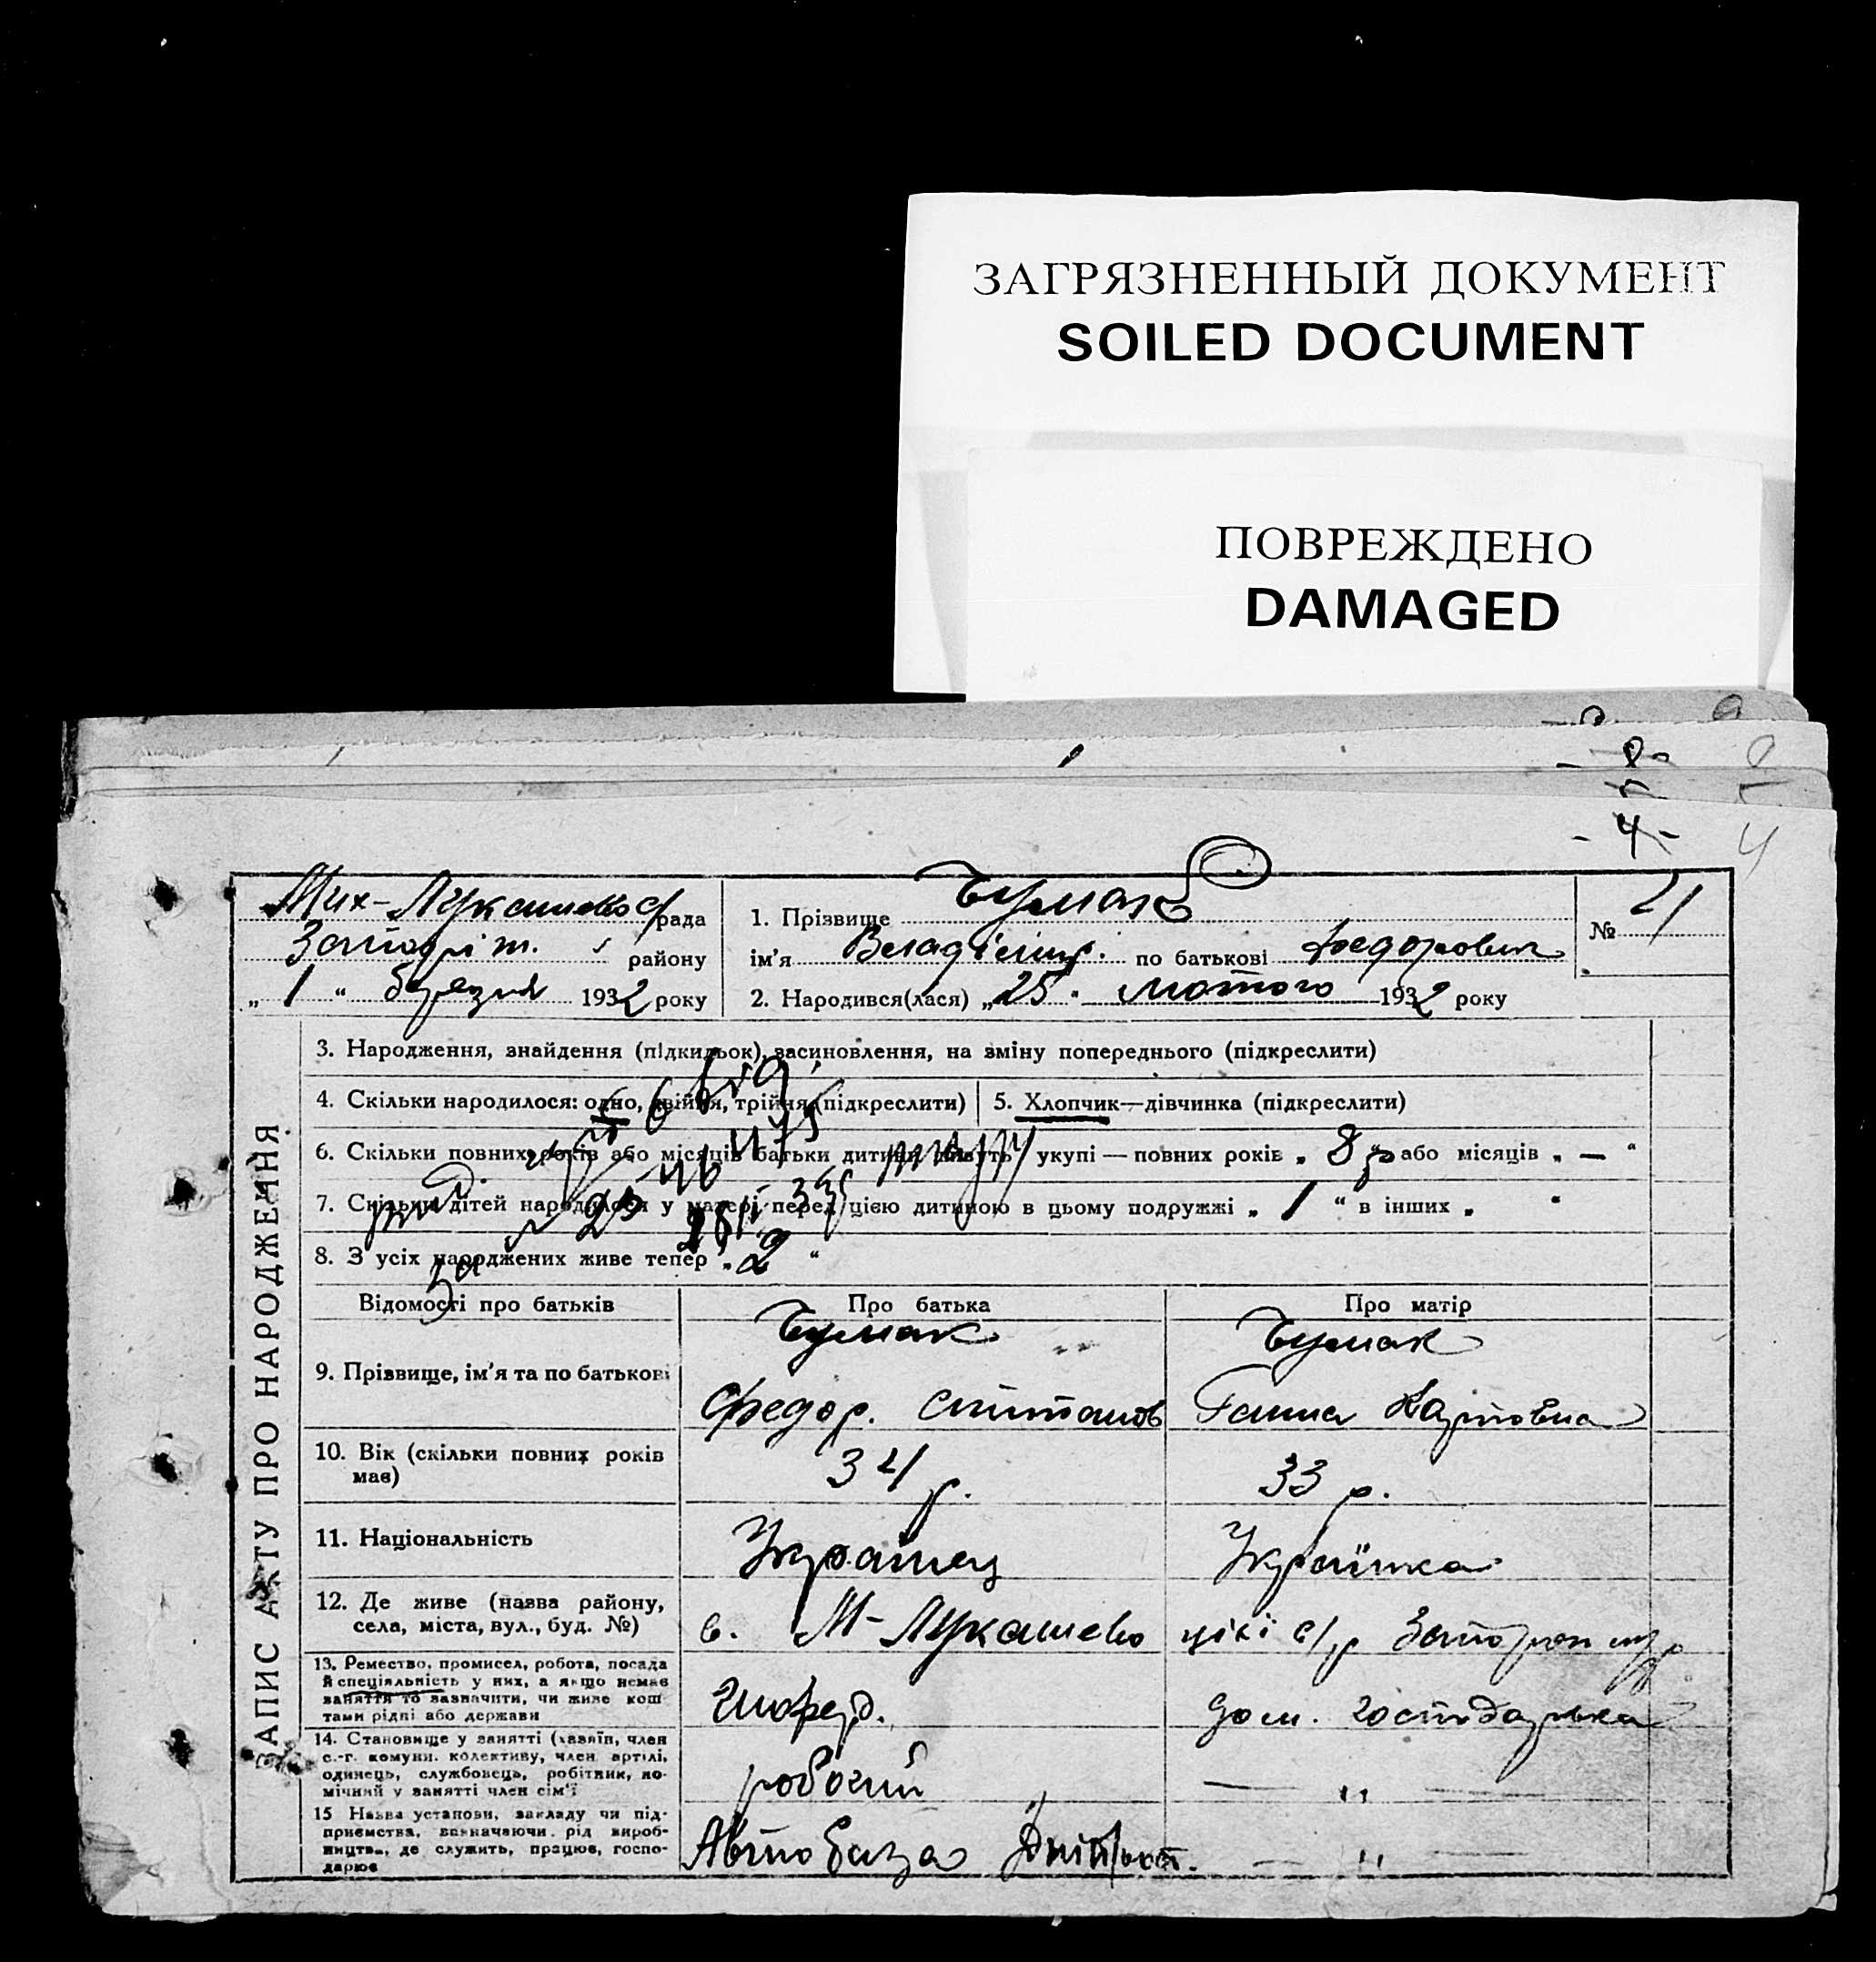 ЗАГРЯЗНЕННЫЙ ДОКУМЕНТ
SOILED DOCUMENT
ПОВРЕЖДЕНО
DAMAGED
- 4 - 4
Мих-Лукашево с/рада
Запоріж. району
„ 1 “ березня 1932 року
1. Прізвище Чумак
ім'я Владімір. по батькові Федорович
2. Народився(лася) „ 25 “ лютого 1932 року
№ 4
ЗАПИС АКТУ ПРО НАРОДЖЕННЯ
3. Народження, знайдення (підкидьок), засиновлення, на зміну попереднього (підкреслити)
4. Скільки народилося: одно, двійня, трійня (підкреслити)
5. Хлопчик—дівчинка (підкреслити)
6. Скільки повних років або місяців батьки дитини живуть укупі — повних років „ 8 р. “ або місяців „ — “
7. Скільки дітей народилося у матері перед цією дитиною в цьому подружжі „ 1 “ в інших „ “
8. З усіх народжених живе тепер „ 2 “
Відомості про батьків Про батька Про матір
9. Прізвище, ім'я та по батькові
Чумак Чумак
Федор. Ганна Карповна
10. Вік (скільки повних років має)
34 р. 33 р.
11. Національність
Українец Українка
12. Де живе (назва району, села, міста, вул., буд. №)
с. М-Лукашево с/р
13. Ремество, промисел, робота, посада й спеціяльність у них, а якщо немає заняття то зазначити, чи живе коштами рідні або держави
Шофер. дом. господарька
14. Становище у занятті (хазяїн, член с.-г. комуни, колективу, член артілі, одинець, службовець, робітник, помічний у занятті член сім'ї
робочий — " —
15 Назва установи, закладу чи підприємства, визначаючи рід виробництва, де служить, працює, господарює
Автобаза — " —